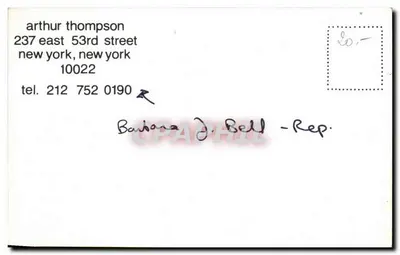 arthur thompson
237 east 53rd street
new york, new york
10022
tel. 212 752 0190
30.-
Barbara J. Bell - Rep.